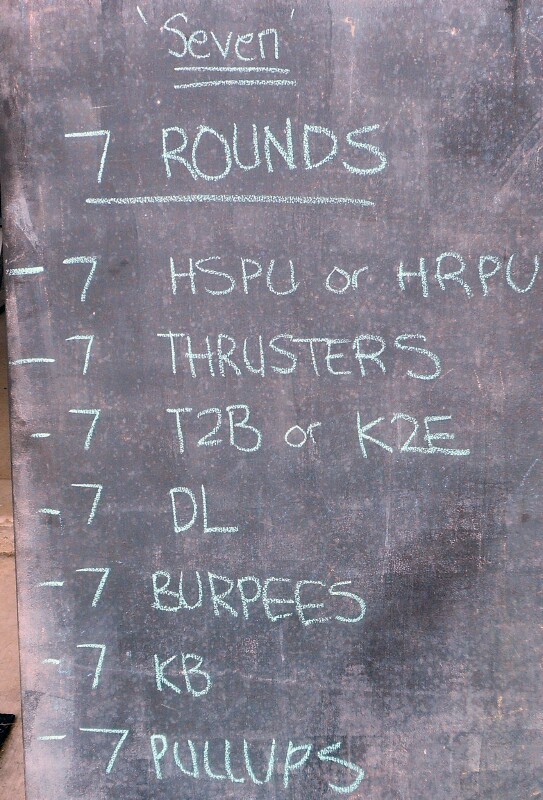 'Seven'
7 ROUNDS
- 7 HSPU or HRPU
- 7 THRUSTERS
- 7 T2B or K2E
- 7 DL
- 7 BURPEES
- 7 KB
- 7 PULLUPS